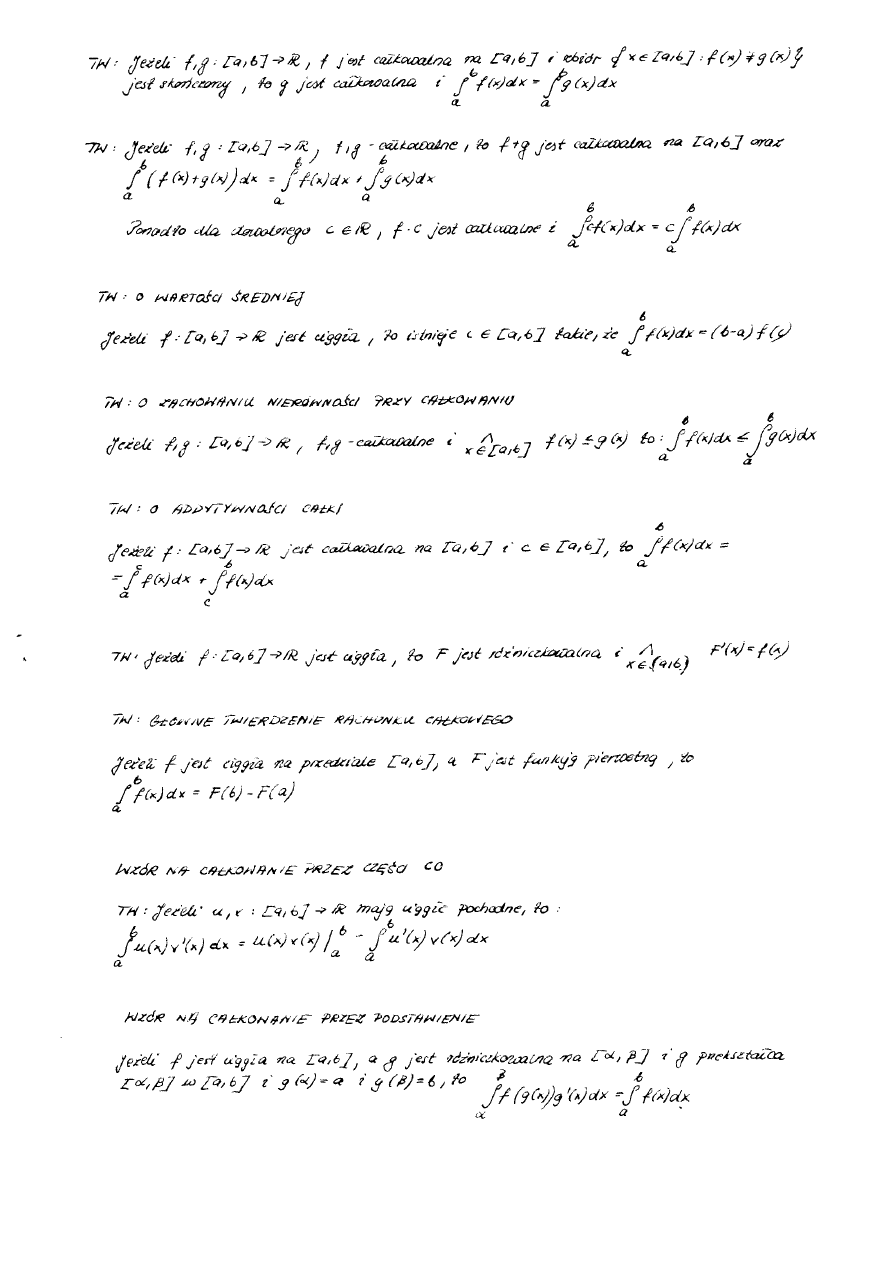 TW: Jeżeli f,g : [a,b] → ℝ, f jest całkowalna na [a,b] i zbiór {x∈[a,b] : f(x) ≠ g(x)}
jest skończony, to g jest całkowalna i ∫_a^b f(x)dx = ∫_a^b g(x)dx
TW: Jeżeli f,g : [a,b] → ℝ, f,g - całkowalne, to f+g jest całkowalna na [a,b] oraz
∫_a^b (f(x)+g(x))dx = ∫_a^b f(x)dx + ∫_a^b g(x)dx
Ponadto dla dowolnego c ∈ ℝ, f·c jest całkowalne i ∫_a^b cf(x)dx = c∫_a^b f(x)dx
TW: O WARTOŚCI ŚREDNIEJ
Jeżeli f : [a,b] → ℝ jest ciągła, to istnieje c ∈ [a,b] takie, że ∫_a^b f(x)dx = (b-a) f(c)
TW: O ZACHOWANIU NIERÓWNOŚCI PRZY CAŁKOWANIU
Jeżeli f,g : [a,b] → ℝ, f,g - całkowalne i ⋀_{x∈[a,b]} f(x) ≤ g(x) to: ∫_a^b f(x)dx ≤ ∫_a^b g(x)dx
TW: O ADDYTYWNOŚCI CAŁKI
Jeżeli f : [a,b] → ℝ jest całkowalna na [a,b] i c ∈ [a,b], to ∫_a^b f(x)dx =
= ∫_a^c f(x)dx + ∫_c^b f(x)dx
TW: Jeżeli f : [a,b] → ℝ jest ciągła, to F jest różniczkowalna i ⋀_{x∈(a,b)} F'(x) = f(x)
TW: GŁÓWNE TWIERDZENIE RACHUNKU CAŁKOWEGO
Jeżeli f jest ciągła na przedziale [a,b], a F jest funkcją pierwotną, to
∫_a^b f(x)dx = F(b) - F(a)
WZÓR NA CAŁKOWANIE PRZEZ CZĘŚCI CO
TW: Jeżeli u,v : [a,b] → ℝ mają ciągłe pochodne, to :
∫_a^b u(x)v'(x)dx = u(x)v(x)|_a^b - ∫_a^b u'(x)v(x)dx
WZÓR NA CAŁKOWANIE PRZEZ PODSTAWIENIE
Jeżeli f jest ciągła na [a,b], a g jest różniczkowalna na [α,β] i g przekształca
[α,β] w [a,b] i g(α)=a i g(β)=b, to ∫_α^β f(g(x))g'(x)dx = ∫_a^b f(x)dx.